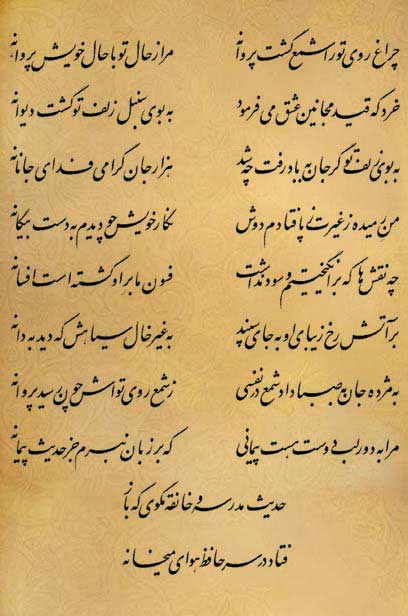 چراغ روی تو را شمع گشت پروانه مرا ز حال تو با حال خویش پروا نه
خرد که قید مجانین عشق می فرمود به بوی سنبل زلف تو گشت دیوانه
به بوی زلف تو گر جان به باد رفت چه شد هزار جان گرامی فدای جانانه
من رمیده ز غیرت ز پا فتادم دوش نگار خویش چو دیدم به دست بیگانه
چه نقش ها که برانگیختیم و سود نداشت فسون ما بر او گشته است افسانه
بر آتش رخ زیبای او به جای سپند به غیر خال سیاهش که دید به دانه
به مژده جان به صبا داد شمع در نفسی ز شمع روی تواش چون رسید پروانه
مرا به دور لب دوست هست پیمانی که بر زبان نبرم جز حدیث پیمانه
حدیث مدرسه و خانقه مگوی که باز
فتاد در سر حافظ هوای میخانه